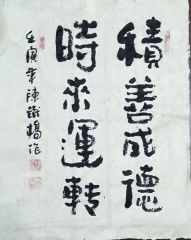 積善成德
時來運轉
壬寅年陳鐵橋作